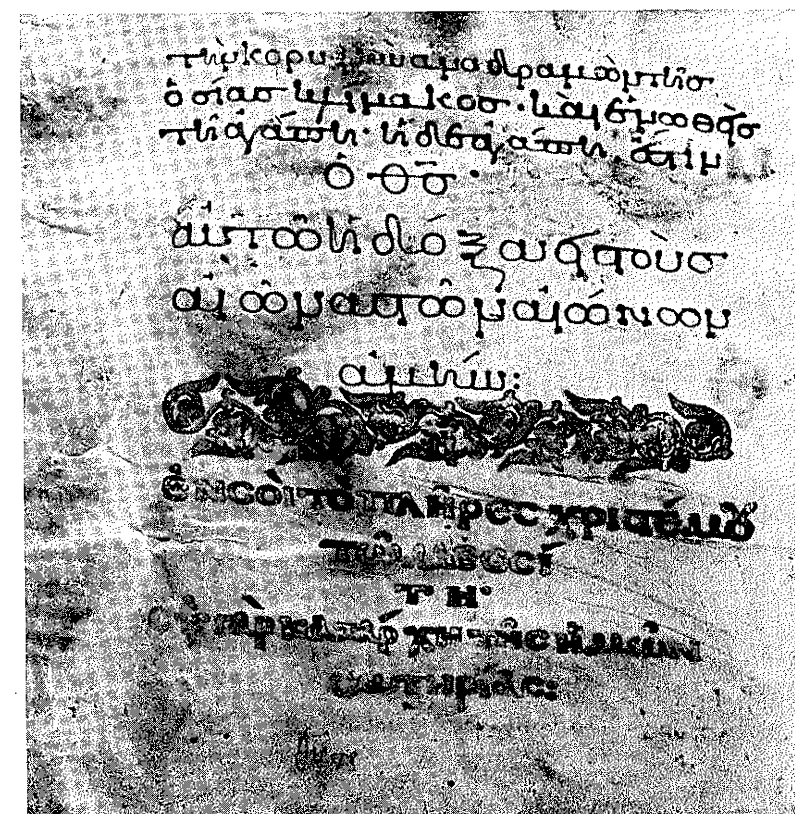 τὴν κορυφὴν ἀναδραμὼν τῆς
ὁσίας κλίμακος· καὶ ἑνωθεὶς
τῆ ἀγάπη· ἡ δὲ ἀγάπη ἐστὶν
ὁ θς·
αὐτῶ ἡ δόξα εἰς τοὺς
αἰῶνας τῶν αἰώνων
ἀμήν:
ἐν σοὶ τὸ πλῆρες χριστέ μου
τη·
γὰρ τῆς ἡμῶν
σωτηρίας: